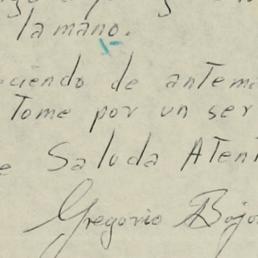 tamano.
ciendo de antema
Tome por un ser
e Saluda Atent
Gregorio Bojo